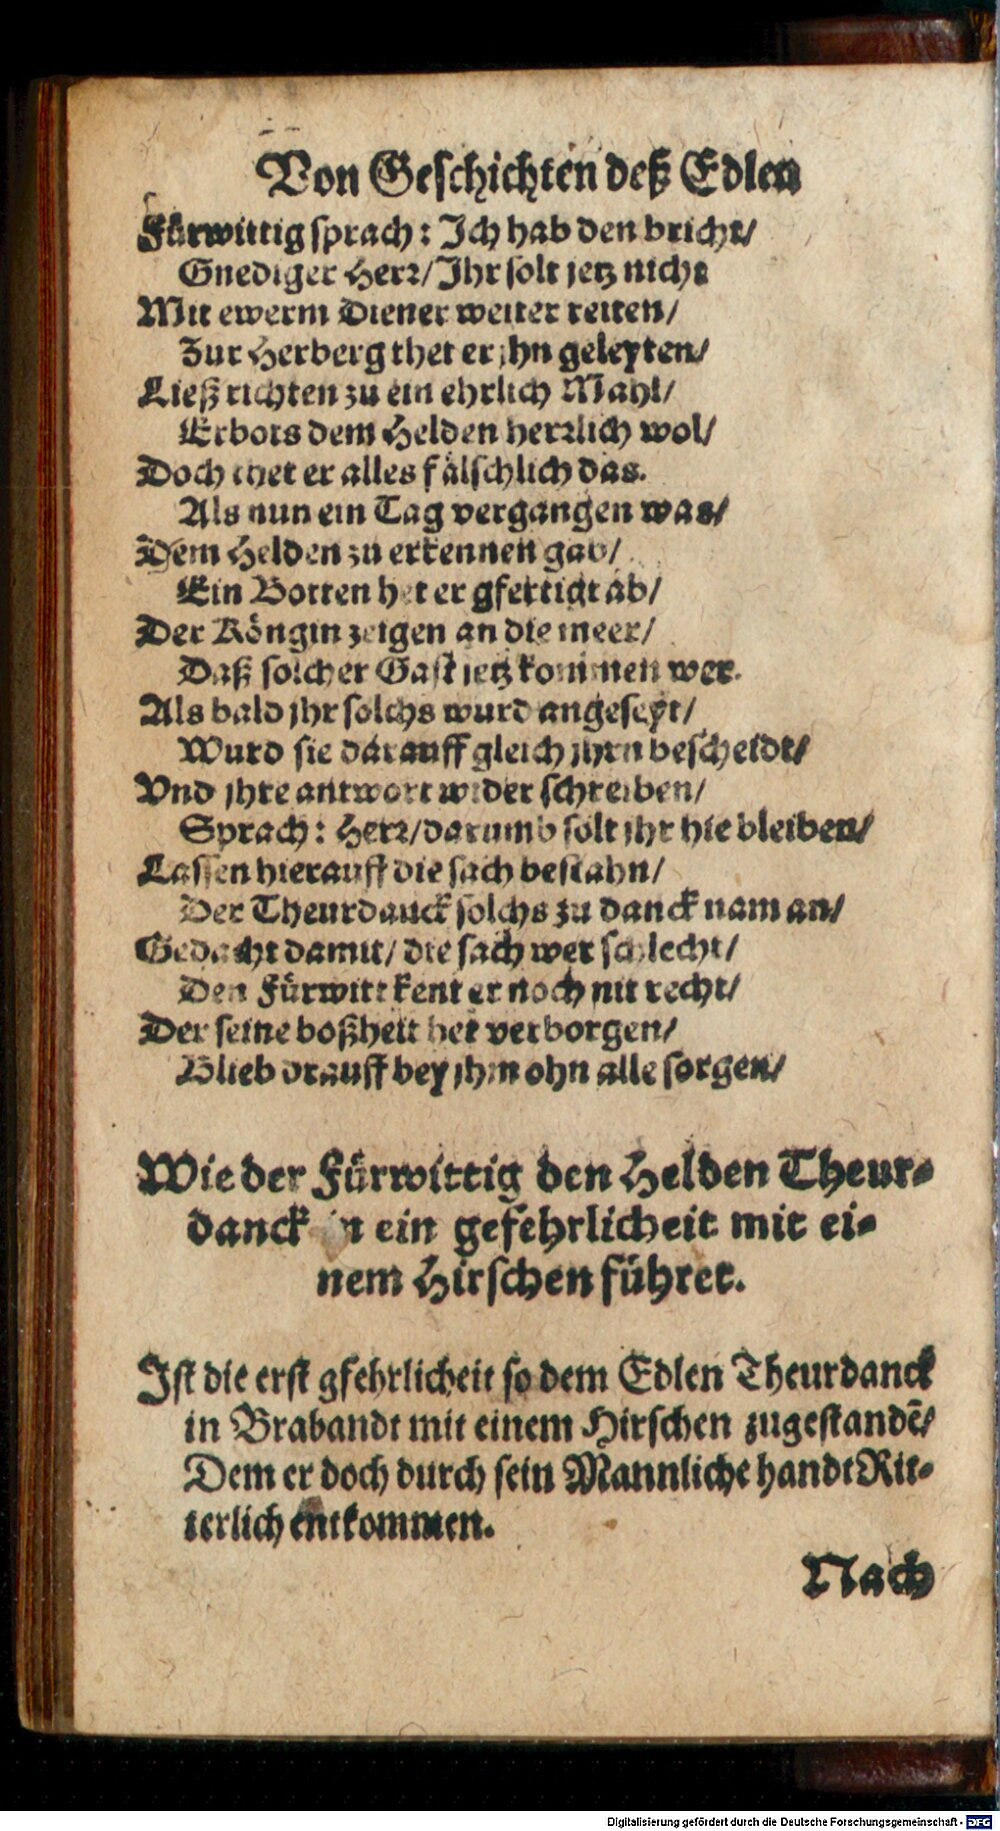 Von Geschichten deß Edlen
Fürwittig sprach: Ich hab den bricht/
Gnediger Herr/Ihr solt jetz nicht
Mit ewerm Diener weiter reiten/
Zur Herberg thet er jhn geleyten/
Ließ richten zu ein ehrlich Mahl/
Erbots dem Helden herrlich wol/
Doch thet er alles fälschlich das.
Als nun ein Tag vergangen was/
Dem Helden zu erkennen gab/
Ein Botten het er gfertigt ab/
Der Köngin zeigen an die meer/
Daß solcher Gast jetz kommen wer.
Als bald jhr solchs wurd angeseyt/
Wurd sie darauff gleich jhrn bescheidt/
Vnd jhre antwort wider schreiben/
Sprach: Herr/darumb solt jhr hie bleiben/
Lassen hierauff die sach bestahn/
Der Theurdanck solchs zu danck nam an/
Gedacht damit/ die sach wer schlecht/
Den Fürwitt kent er noch nit recht/
Der seine boßheit het verborgen/
Blieb drauff bey jhm ohn alle sorgen/
Wie der Fürwittig den Helden Theur-
danck in ein gefehrlicheit mit ei-
nem Hirschen führet.
Ist die erst gfehrlicheit so dem Edlen Theurdanck
in Brabandt mit einem Hirschen zugestandē/
Dem er doch durch sein Mannliche handt Rit-
terlich entkommen.
Nach
Digitalisierung gefördert durch die Deutsche Forschungsgemeinschaft - DFG